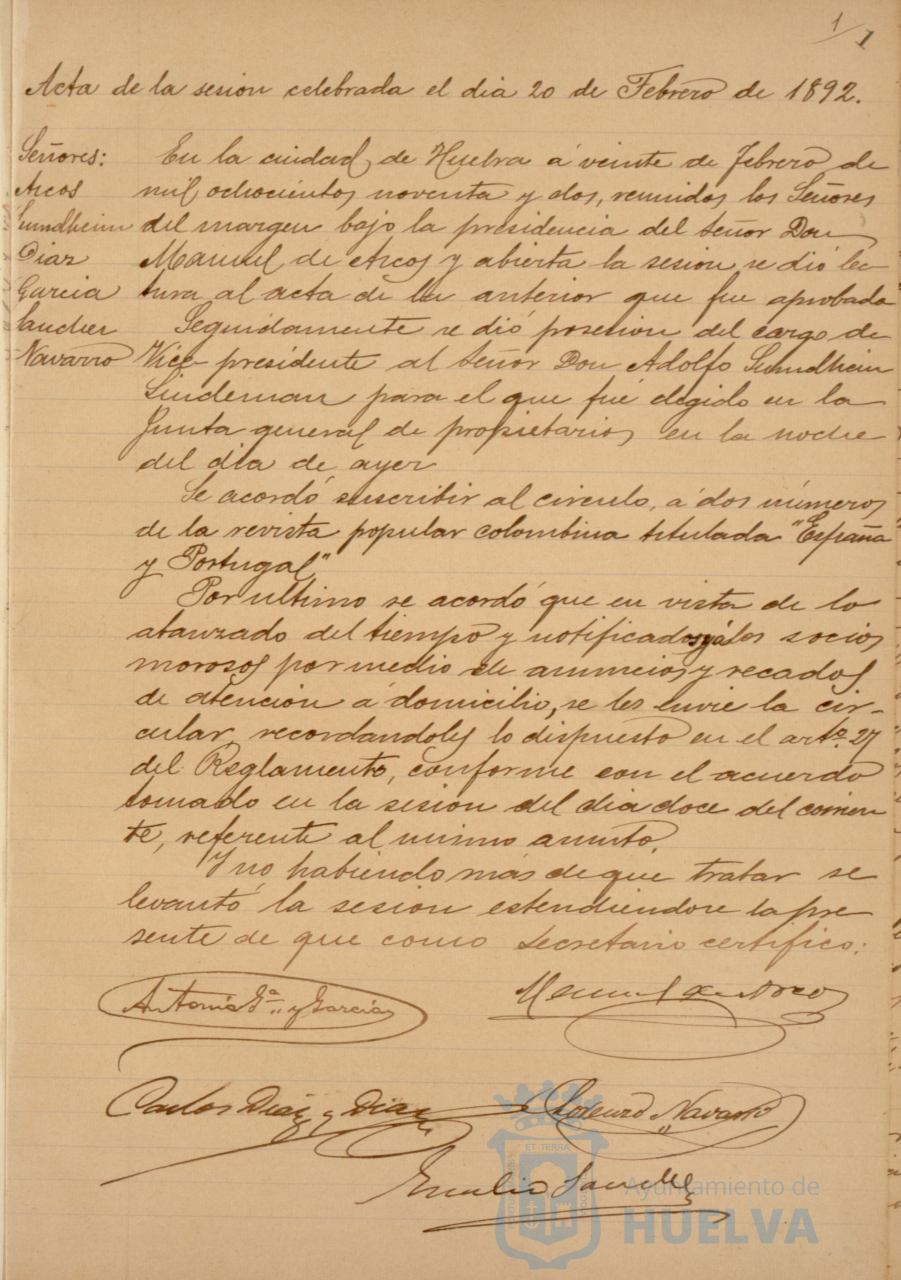 1/1
Acta de la sesion celebrada el dia 20 de Febrero de 1892.
Señores:
Arcos
Sundheim
Diaz
Garcia
Sanchez
Navarro
En la ciudad de Huelva á veinte de febrero de
mil ochocientos noventa y dos, reunidos los Señores
del margen bajo la presidencia del Señor Don
Manuel de Arcos y abierta la sesion se dió lec-
tura al acta de la anterior que fue aprobada
Seguidamente se dió posesion del cargo de
Vice presidente al Señor Don Adolfo Sundheim
Lindeman para el que fué elegido en la
Junta general de propietarios en la noche
del dia de ayer
Se acordó suscribir al circulo, á dos números
de la revista popular colombina titulada "España
y Portugal"
Por ultimo se acordó que en vista de lo
abanzado del tiempo y notificados yá los socios
morosos por medio de anuncios y recados
de atencion á domicilio, se les envie la cir-
cular, recordandoles lo dispuesto en el artº 27
del Reglamento, conforme con el acuerdo
tomado en la sesion del dia doce del corrien
te, referente al mismo asunto.
Y no habiendo más de que tratar se
levantó la sesion estendiendose la pre
sente de que como Secretario certifico:
Antonio Gª y Garcia
Manuel de Arcos
Carlos Diaz y Diaz
Lorenzo Navarro
Emilio Sanchez
ET TERRA
Ayuntamiento de
HUELVA